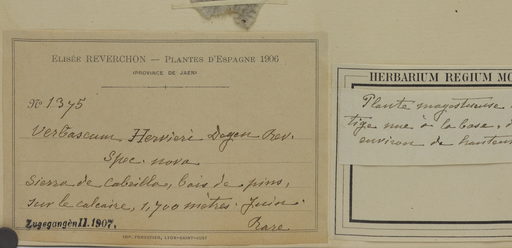 ELISÉE REVERCHON — PLANTES D'ESPAGNE 1906
(PROVINCE DE JAEN)
No 1375
Verbascum Hervieri Degen Rev.
Spec. nova
Sierra de Cabrilla, bois de pins,
sur le calcaire, 1,700 mètres. Juin.
Rare
Zugegangen II. 1907.
IMP. FORESTIER, LYON-SAINT-JUST
HERBARIUM REGIUM MO
Plante majestueuse
tige nue à la base, d
environ de hauteur